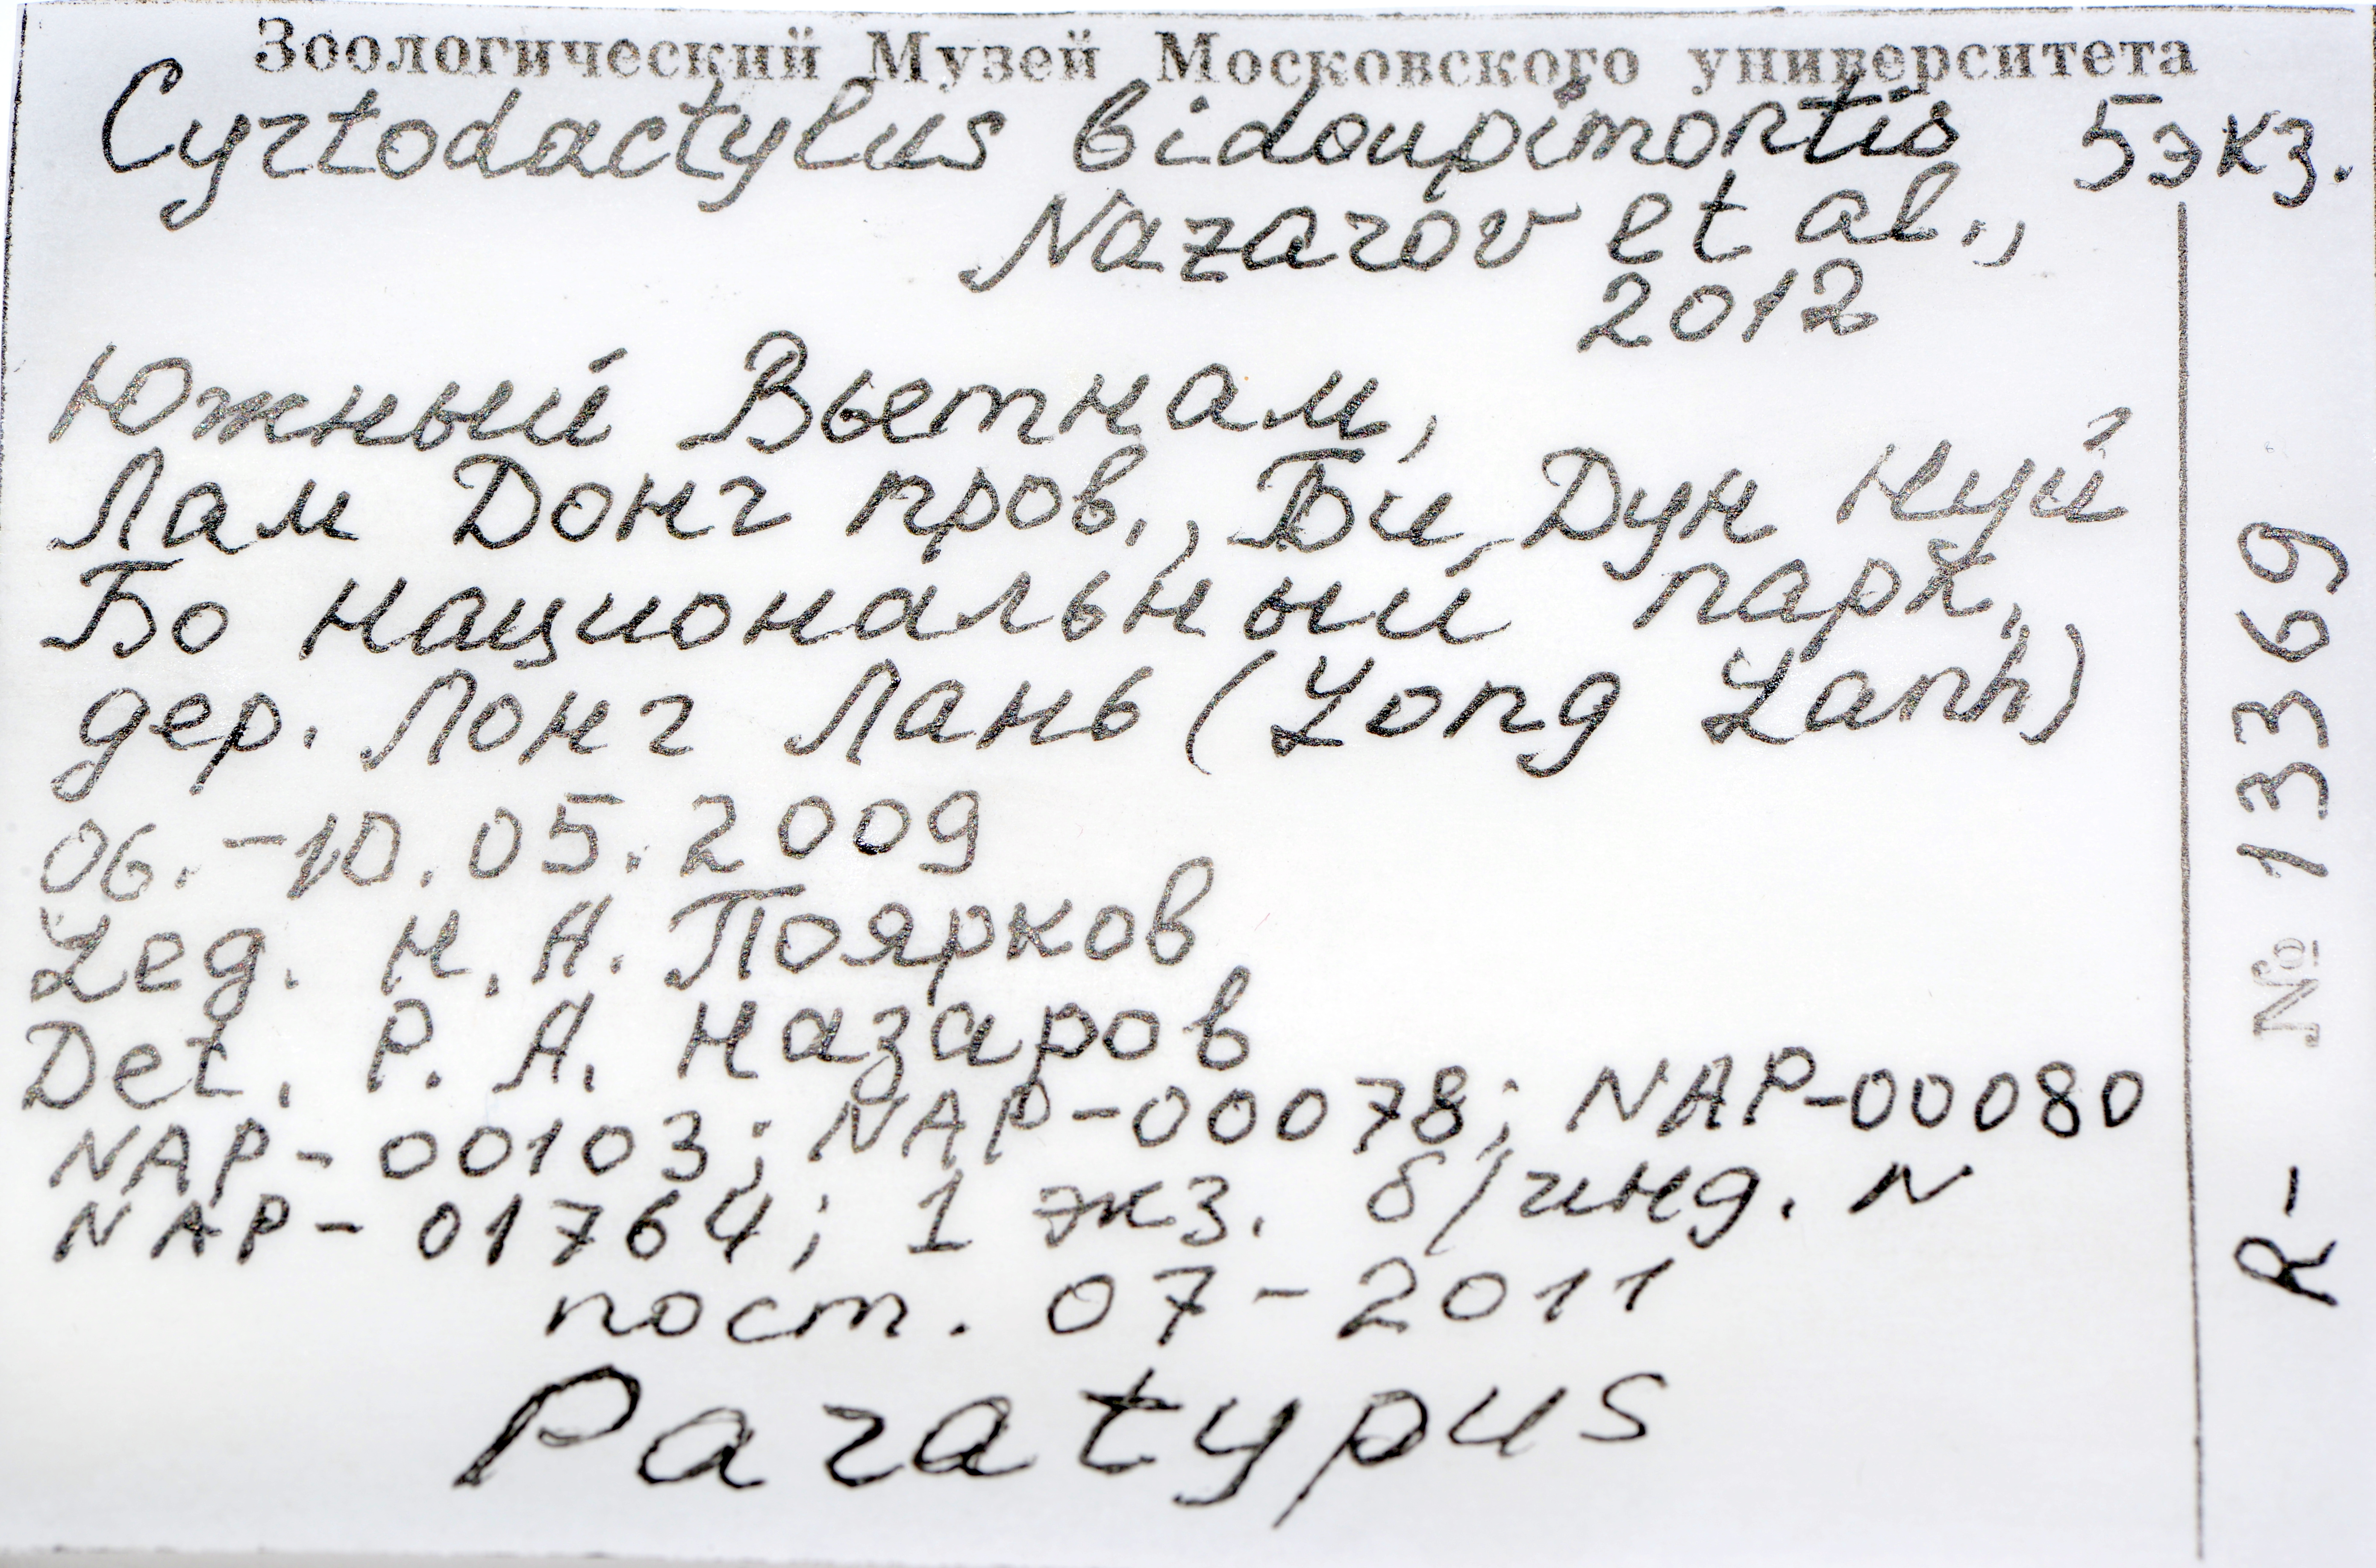 Зоологический Музей Московского университета
Cyrtodactylus bidoupimontis 5 экз.
Nazarov et al.,
2012
Южный Вьетнам,
Лам Донг пров., Би Дуп Нуй
Бо национальный парк,
дер. Лонг Лань (Long Lanh)
06.-10.05.2009
Leg. Н.А. Поярков
Det. Р.А. Назаров
NAP-00103; NAP-00078; NAP-00080
NAP-01764; 1 экз. б/инд. N
пост. 07-2011
Paratypus
R- № 13369